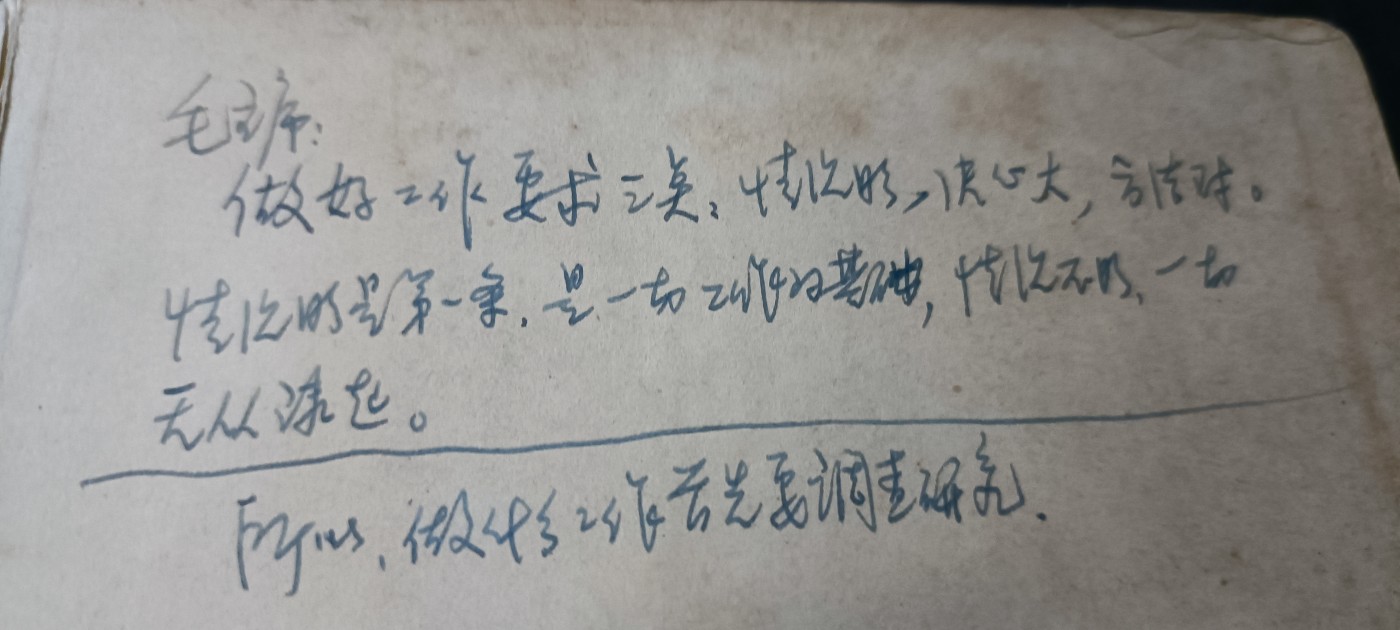 毛主席：
做好工作要求三点：情况明，决心大，方法对。
情况明是第一条，是一切工作的基础，情况不明，一切
无从谈起。
所以，做什么工作首先要调查研究．